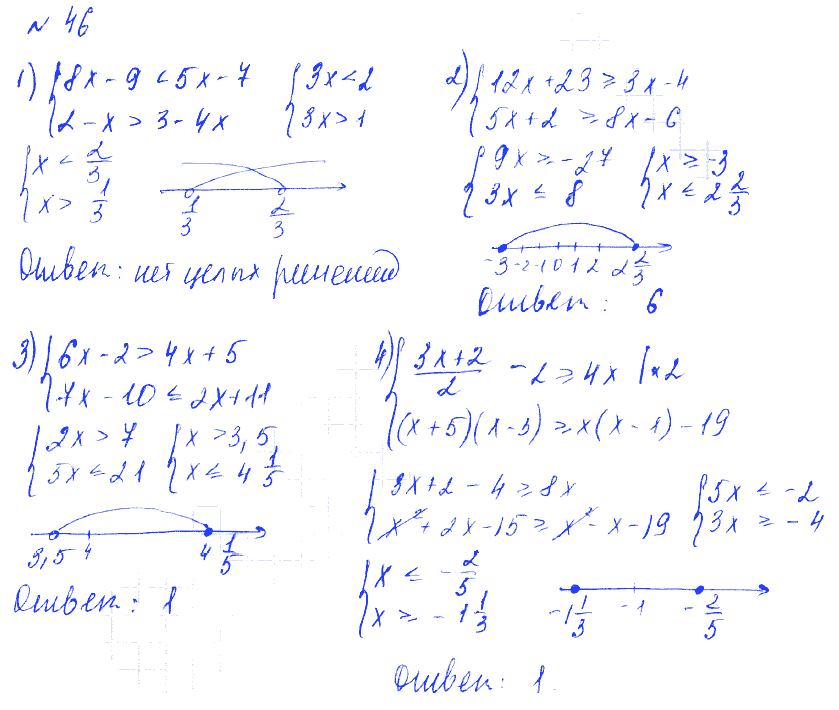 № 46
1) { 8x - 9 < 5x - 7 { 3x < 2
{ 2 - x > 3 - 4x { 3x > 1
{ x < 2/3
{ x > 1/3
1/3 2/3
Ответ: нет целых решений
2) { 12x + 23 ≥ 3x - 4
{ 5x + 2 ≥ 8x - 6
{ 9x ≥ -27 { x ≥ -3
{ 3x ≤ 8 { x ≤ 2 2/3
-3 -2 -1 0 1 2 2 2/3
Ответ: 6
3) { 6x - 2 > 4x + 5
{ 7x - 10 ≤ 2x + 11
{ 2x > 7 { x > 3,5
{ 5x ≤ 21 { x ≤ 4 1/5
3,5 4 4 1/5
Ответ: 1
4) { (3x + 2)/2 - 2 ≥ 4x |×2
{ (x + 5)(x - 3) ≥ x(x - 1) - 19
{ 3x + 2 - 4 ≥ 8x { 5x ≤ -2
{ x² + 2x - 15 ≥ x² - x - 19 { 3x ≥ -4
{ x ≤ -2/5
{ x ≥ -1 1/3
-1 1/3 -1 -2/5
Ответ: 1.